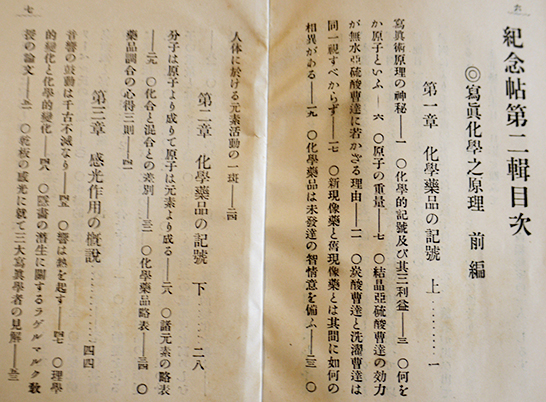 六
紀念帖第二輯目次
◎寫眞化學之原理 前編
第一章 化學藥品の記號 上………一
寫眞術原理の神秘――一 ○化學的記號及び其三利益――三 ○何を
か原子といふ――六 ○原子の重量――七 ○結晶亞硫酸曹達の効力
が無水亞硫酸曹達に若かざる理由――一一 ○炭酸曹達と洗濯曹達は
同一視すべからず――一七 ○新現像藥と舊現像藥とは其間に如何の
相異がある――一九 ○化學藥品は未發達の智情意を備ふ――二三 ○
七
人体に於ける元素活動の一斑――二四
第二章 化學藥品の記號 下……二八
分子は原子より成りて原子は元素より成る――二八 ○諸元素の略表
――二九 ○化合と混合との差別――三二 ○化學藥品略表――三四 ○
藥品調合の心得三則――四一
第三章 感光作用の槪說……四四
音響の鼓動は千古不滅なり――四五 ○響は熱を起す――四七 ○理學
的變化と化學的變化――四八 ○陰畵の潛生に關するラゲルマルク敎
授の論文――五一 ○乾板の感光に就て三大寫眞學者の見解――五三